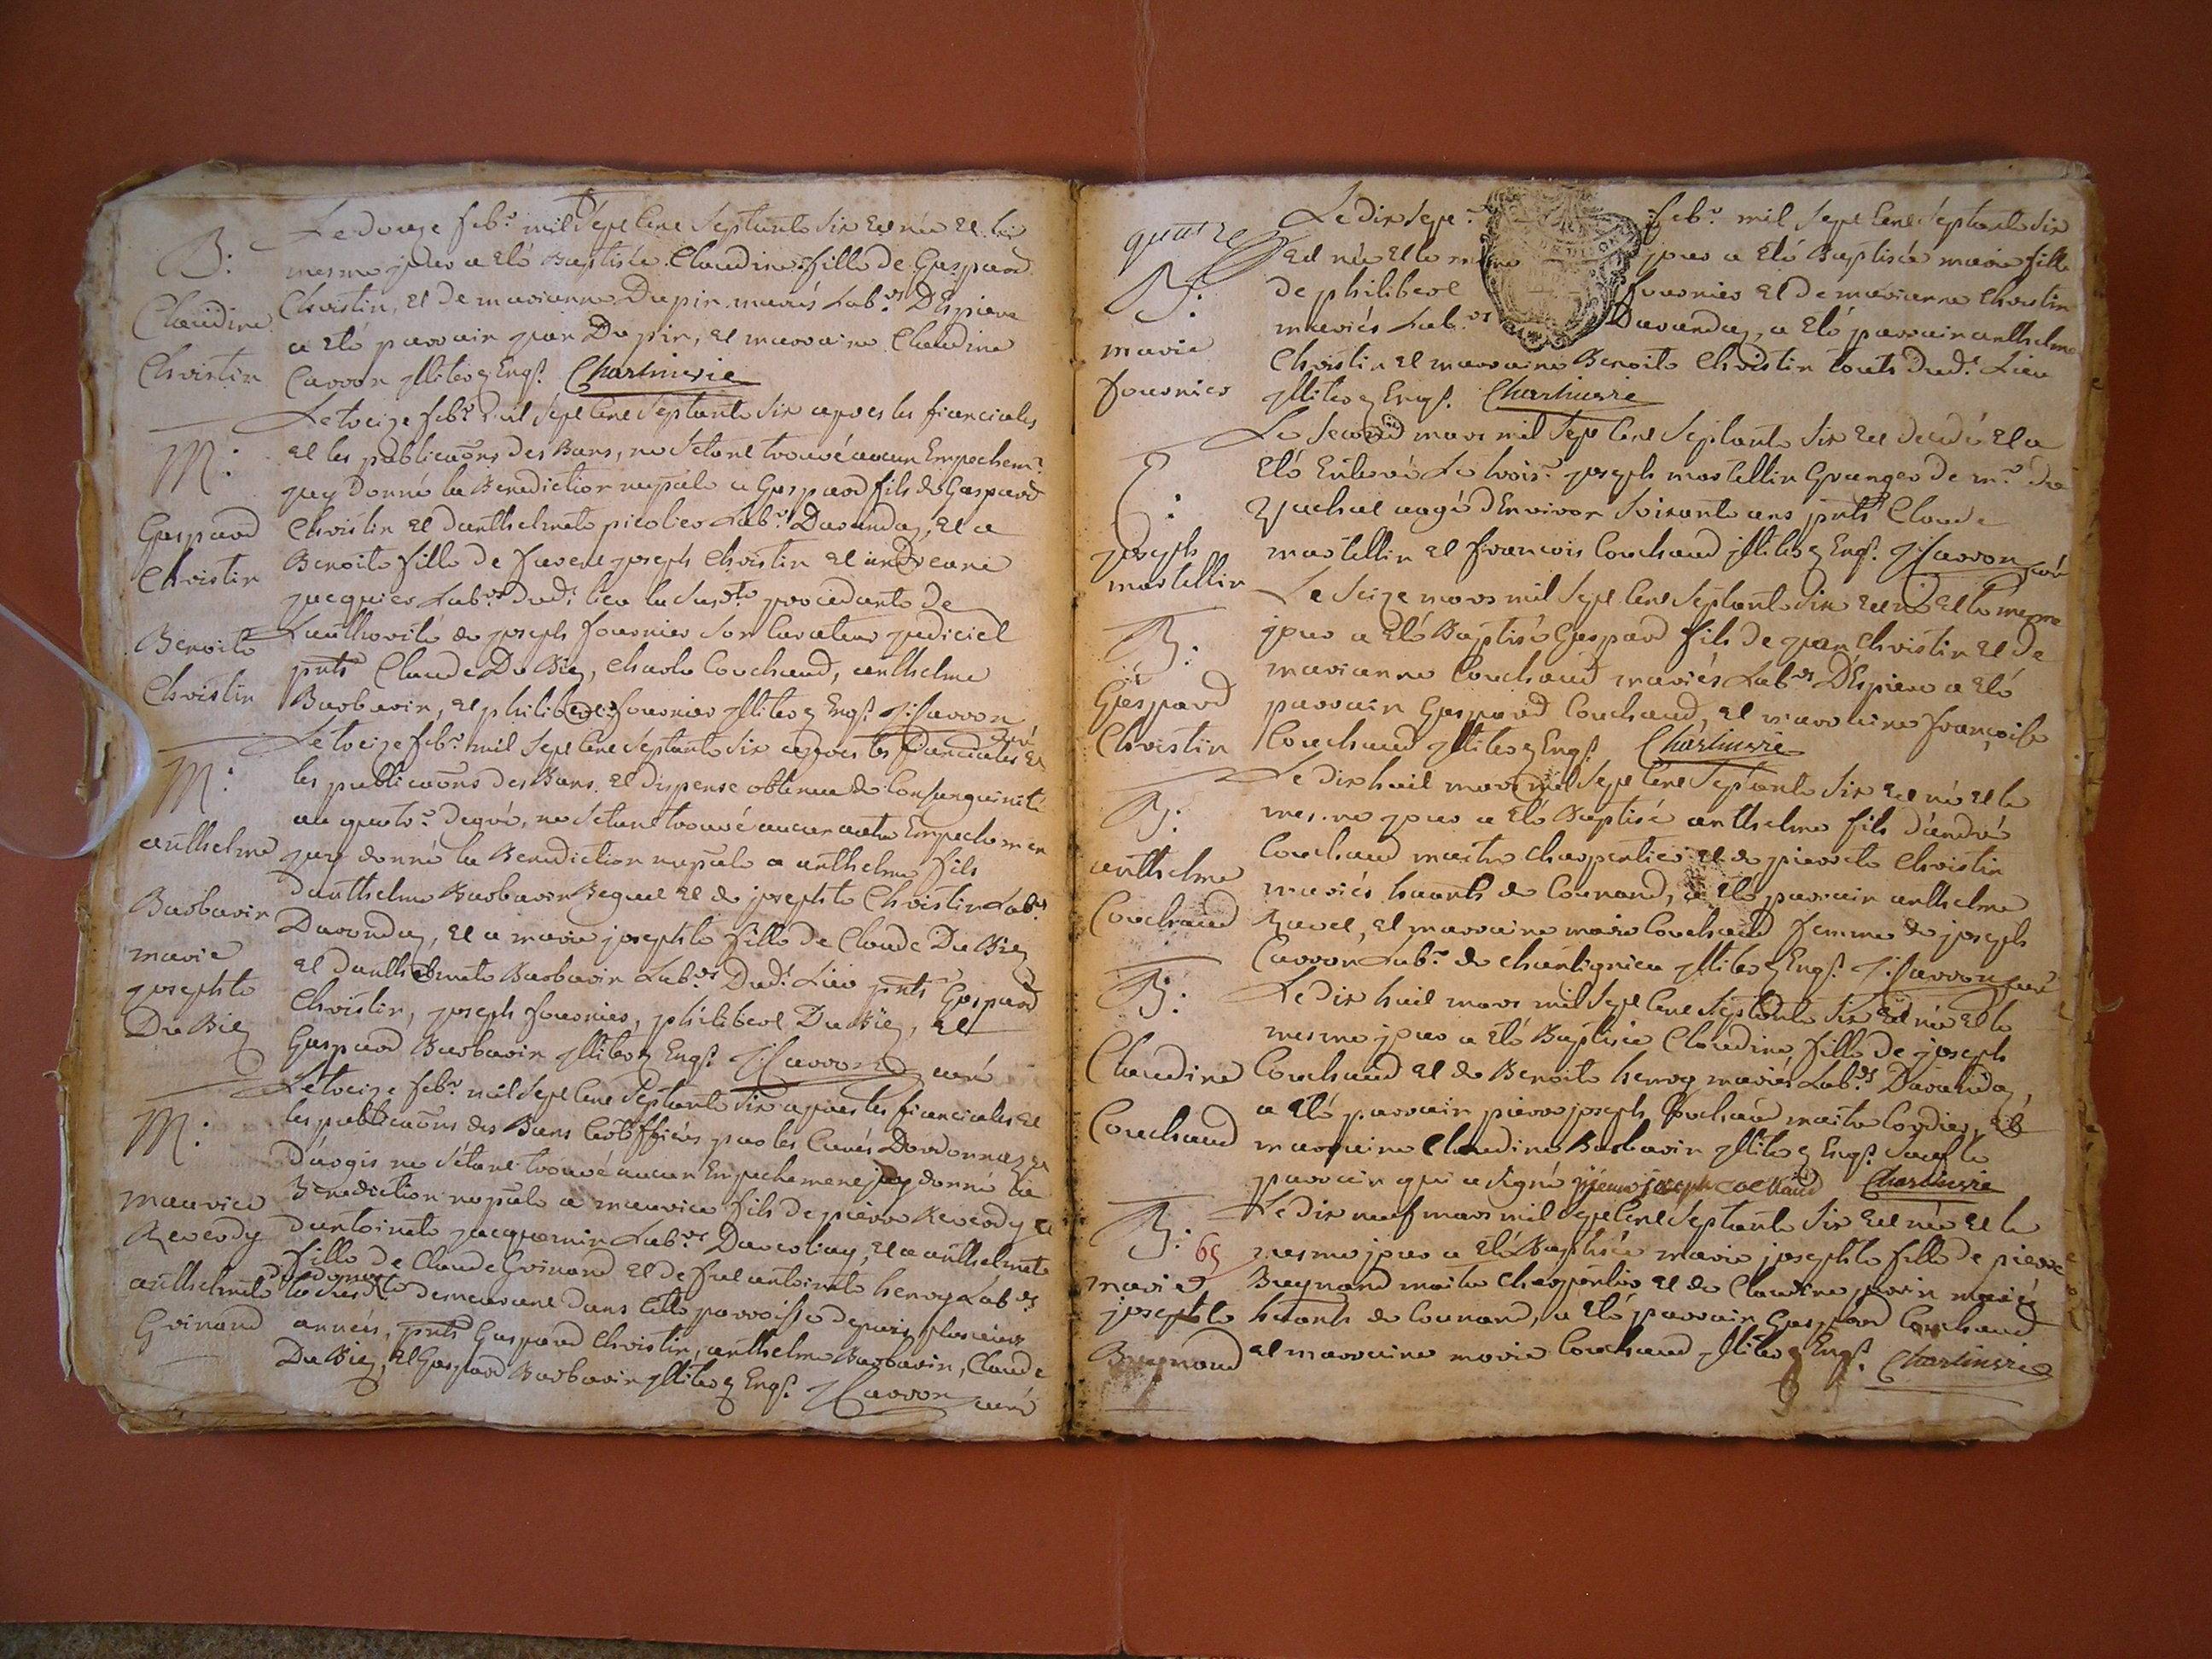 B:
Claudine
Christin
Le douze febr. mil sept cent septante six est née et le
mesme jour a eté Baptisée Claudine fille de Gaspard
Christin, et de marianne Dupin mariés Labrs D'Espiere
a eté parrain jean Dupin, et marraine Claudine
Carron illiter. Enqs. Charlinerie
M:
Gaspard
Christin
Benoite
Christin
Le treize febr. mil sept cent septante six apres les fiancialles
et les publicaõns des Bans, ne s'etant trouvé aucun Empechemt.
jay donné la Benediction nuptale a Gaspard fils de Gaspard
Christin et d'anthelmete picolier Labrs. Davanday, et a
Benoite fille de joseph Christin et
jacquier Labrs dudt. lieu la susdte procedante de
L'authorité de joseph fournier son Curateur judiciel
pnts Claude Du Biez, Charle Couchaud, anthelme
Barbarin, et philibert fournier illiter. Enqs. J: Carron
curé
M:
anthelme
Barbarin
marie
josephte
Du Biez
Le treize febr. mil sept cent septante six apres les fiancialles et
les publicaõns des Bans, et dispense obtenue de Consanguinité
au quatr. degré, ne s'etant trouvé aucun autre Empechemen
jay donné la Benediction nuptale a anthelme fils
d'anthelme Barbarin Beguet et de josephte Christin Labrs
Davanday, et a marie josephte fille de Claude Du Biez
et d'anthelmete Barbarin Labrs Dudt. Lieu pnts Gaspard
Christin, joseph fournier, philibert Du Biez, et
Gaspard Barbarin illiter. Enqs. J: Carron curé
M:
maurice
Reverdy
anthelmete
Grinand
Le treize febr. mil sept cent septante six apres les fiancialles et
les publicaõns des Bans certiffiées par les Curés Dordonnaz et
d'arogis ne s'étant trouvé aucun Empechement jay donné la
Benediction nuptale a maurice fils de pierre Reverdy et
d'antoinete jacquemin Labrs et a anthelmete
fille de Claude Grinand et de fue antoinete henry Labrs
la susdte demeurant dans cette parroisse depuis plusieurs
années, pnts Gaspard Christin, anthelme Barbarin, Claude
Du Biez, et Gaspard Barbarin illiter. Enqs. J: Carron curé
quatre
B:
marie
fournier
Le dix sept febr. mil sept cent septante six
est née et le mesme jour a eté Baptisée marie fille
de philibert fournier et de marianne Christin
mariés Labrs Davanday, a eté parrain anthelme
Christin et marraine Benoite Christin touts dudt. Lieu
illiter. Enqs. Charlinerie
S:
joseph
martellin
Le second mars mil sept cent septante six est decedé et a
eté Enterré Le trois. joseph martellin Granger de mr. de
agé d'Environ soixante ans pnts Claude
martellin et francois Couchaud illiter. Enqs. J: Carron curé
B:
Gaspard
Christin
Le seize mars mil sept cent septante six est né et le mesme
jour a eté Baptisé Gaspard fils de jean Christin et de
marianne Couchaud mariés Labrs D'Espiere a eté
parrain Gaspard Couchaud, et marraine françoise
Couchaud illiter. Enqs. Charlinerie
B:
anthelme
Couchaud
Le dix huit mars mil sept cent septante six est né et le
mesme jour a eté Baptisé anthelme fils d'andré
Couchaud maitre charpentier et de pierrete Christin
mariés haants de Counand, a eté parrain anthelme
Ravet, et marraine marie Couchaud femme de joseph
Carron Labr. de Chantignieu illiter. Enqs. J: Carron curé
B:
Claudine
Couchaud
Le dix huit mars mil sept cent septante six est née et le
mesme jour a eté Baptisée Claudine fille de joseph
Couchaud et de Benoite henry mariés Labrs. Davanday,
a eté parrain pierre joseph Couchaud maitre Cordier, et
marraine Claudine Barbarin illiter. Enqs. sauf le
parrain qui a signé pierre joseph cochaud Charlinerie
B: 65
marie
josephte
Buynand
Le dix neuf mars mil sept cent septante six est née et le
mesme jour a eté Baptisée marie josephte fille de pierre
Buynand maitre charpentier et de Claudine mariés
haants de Counand, a eté parrain Gaspard Couchaud
et marraine marie Couchaud illiter. Enqs. Charlinerie